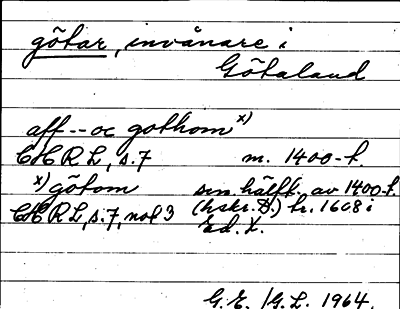 götar, invånare i
Götaland
aff -- oc gothom x)
CHRL, s. 7 m. 1400-t.
x) götom sen. hälft. av 1400-t.
CHRL, s. 7, not 3 (hskr. D.) tr. 1608 i
Ed. X.
G.E. /G.L. 1964.